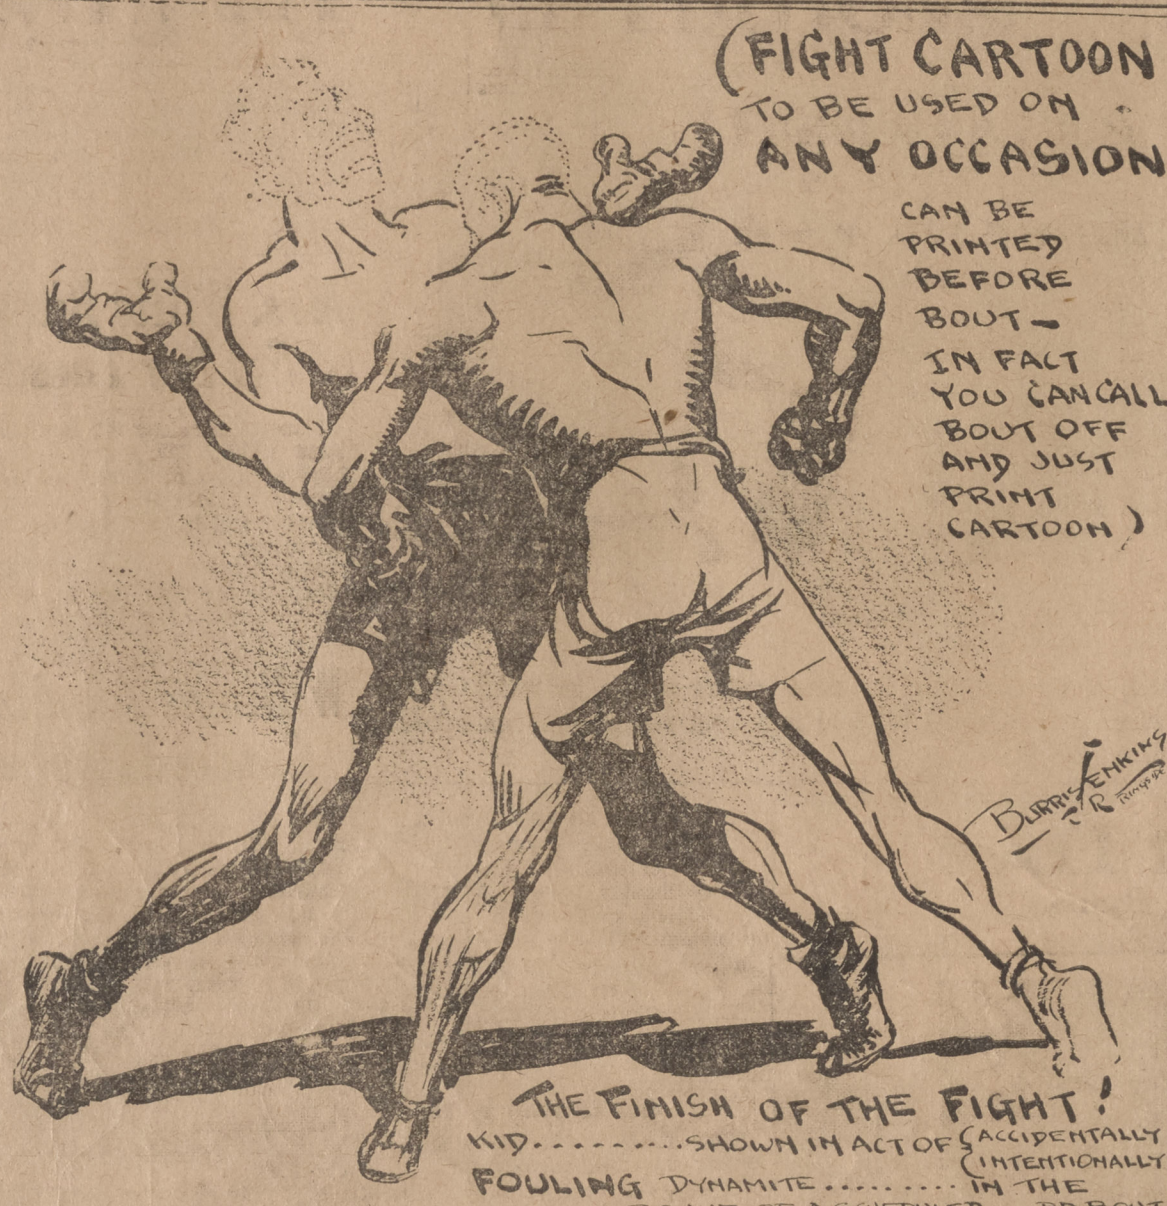 (FIGHT CARTOON
TO BE USED ON
ANY OCCASION
CAN BE
PRINTED
BEFORE
BOUT-
IN FACT
YOU CAN CALL
BOUT OFF
AND JUST
PRINT
CARTOON)
BURRIS JENKINS
JR
THE FINISH OF THE FIGHT!
KID..........SHOWN IN ACT OF {ACCIDENTALLY
{INTENTIONALLY
FOULING DYNAMITE......... IN THE